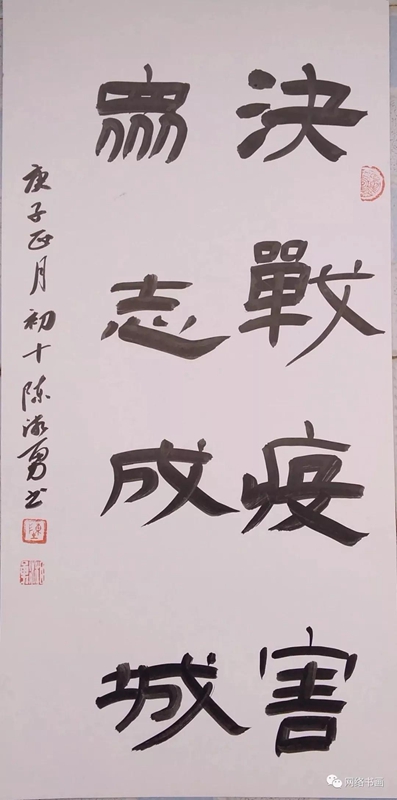 決戰疫害
眾志成城
庚子正月初十陈勇书
网络书画